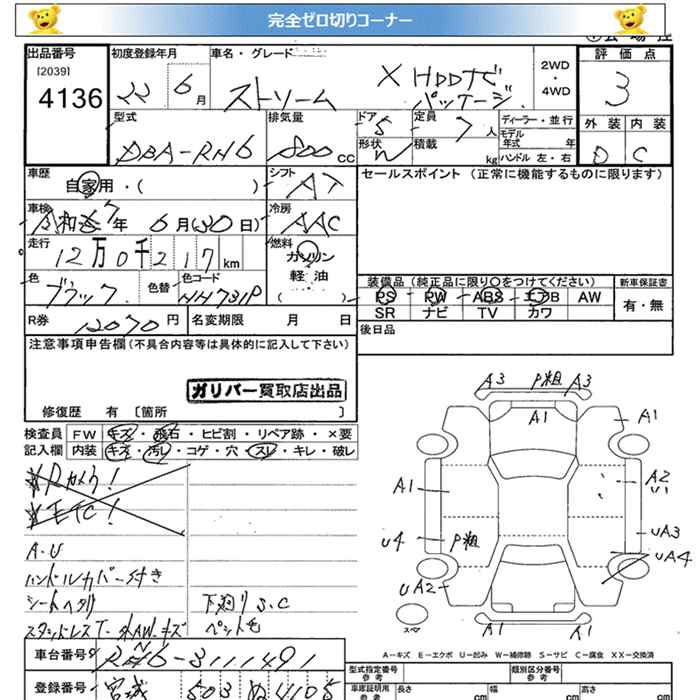 完全ゼロ切りコーナー
出品番号 初度登録年月 車名・グレード
[2039]
4136 22 6月 ストリーム X HDDナビパッケージ 2WD・4WD
評価点
3
外装 内装
D C
型式 排気量 ドア 定員 ディーラー・並行
DBA-RN6 1800 CC 5 7人
モデル年式 年
形状 積載 kg ハンドル 左・右
W
車歴 自家用・( ) シフト AT
セールスポイント(正常に機能するものに限ります)
車検 令和 7年 6月(30日) 冷房 AAC
走行 12万0千217km 燃料 ガソリン
軽・油
( )
色 ブラック 色替 色コード NH731P
装備品(純正品に限り○をつけてください) 新車保証書
PS PW ABS エアB AW 有・無
SR ナビ TV カワ
R券 12070円 名変期限 月 日 後日品
注意事項申告欄(不具合内容等は具体的に記入して下さい)
ガリバー買取店出品
修復歴 有〔箇所 〕
検査員 FW キズ・飛石・ヒビ割・リペア跡・×要
記入欄 内装 キズ・汚レ・コゲ・穴・スレ・キレ・破レ
※Rカメラ!
※ETC!
A・U
ハンドルカバー付き
シートヘタリ 下廻りS.C
スタッドレスT・外AWキズ ペット毛
A3 P粗 A3
A1 A1
A1 A2
U1
U4 P粗 UA3
UA4
UA2
スペア
A1 A1
A-キズ E-エクボ U-凹み W-補修跡 S-サビ C-腐食 XX-交換済
車台番号 RN6-3111491
型式指定番号 参考 類別区分番号 参考
登録番号 宮城 503 ぬ 4105
車庫証明用 参考 長さ cm 幅 cm 高さ cm